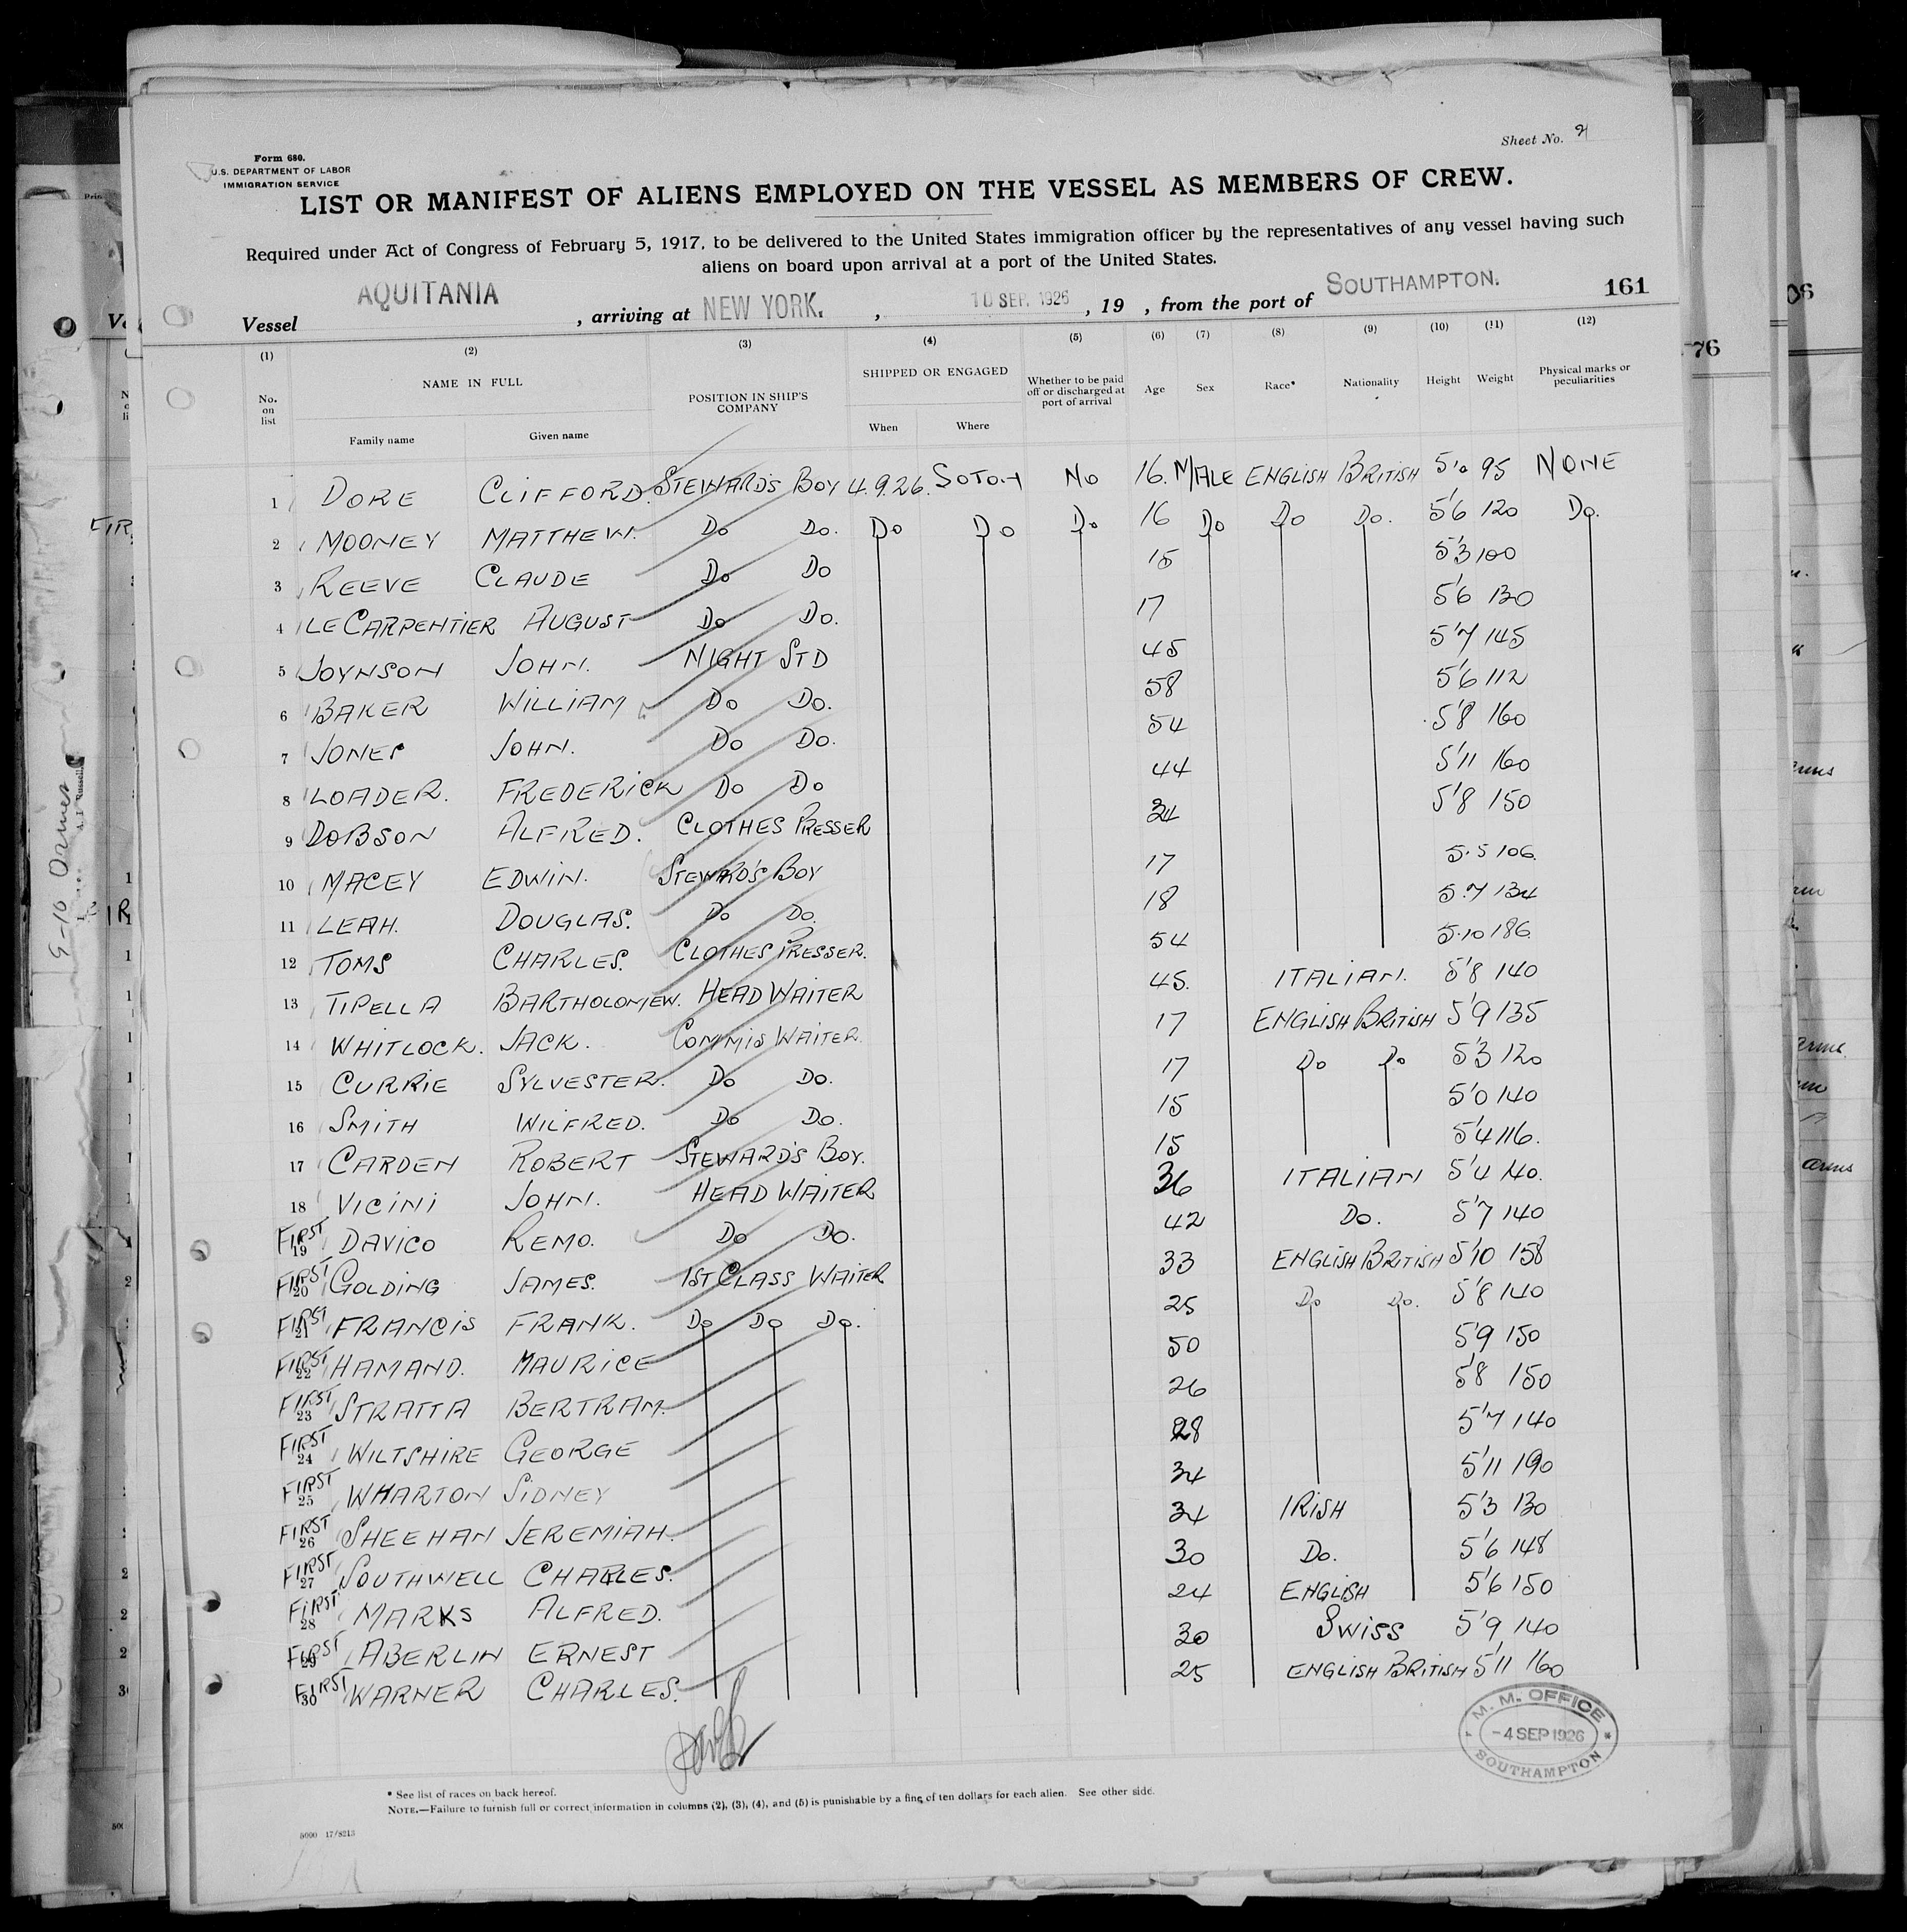 Sheet No. 2
Form 680.
U.S. DEPARTMENT OF LABOR
IMMIGRATION SERVICE
LIST OR MANIFEST OF ALIENS EMPLOYED ON THE VESSEL AS MEMBERS OF CREW.
Required under Act of Congress of February 5, 1917, to be delivered to the United States immigration officer by the representatives of any vessel having such
aliens on board upon arrival at a port of the United States.
Vessel AQUITANIA, arriving at NEW YORK., 10 SEP. 1926, 19 , from the port of SOUTHAMPTON. 161
(1) (2) (3) (4) (5) (6) (7) (8) (9) (10) (11) (12)
No. on list NAME IN FULL POSITION IN SHIP'S COMPANY SHIPPED OR ENGAGED Whether to be paid off or discharged at port of arrival Age Sex Race* Nationality Height Weight Physical marks or peculiarities
Family name Given name When Where
1 DORE CLIFFORD. STEWARD'S BOY 4.9.26. SOTON NO 16. MALE ENGLISH BRITISH 5'0 95 NONE
2 MOONEY MATTHEW. DO DO. DO DO DO 16 DO DO DO. 5'6 120 DO.
3 REEVE CLAUDE DO DO 15 5'3 100
4 LE CARPENTIER AUGUST DO DO. 17 5'6 130
5 JOYNSON JOHN. NIGHT STD 45 5'7 145
6 BAKER WILLIAM DO DO. 58 5'6 112
7 JONES JOHN. DO DO. 54 5'8 160
8 LOADER. FREDERICK DO DO 44 5'11 160
9 DOBSON ALFRED. CLOTHES PRESSER 34 5'8 150
10 MACEY EDWIN. STEWARD'S BOY 17 5.5 106.
11 LEAH. DOUGLAS. DO DO. 18 5.7 134
12 TOMS CHARLES. CLOTHES PRESSER. 54 5.10 186.
13 TIPELLA BARTHOLOMEW. HEAD WAITER 45. ITALIAN. 5'8 140
14 WHITLOCK. JACK. COMMIS WAITER. 17 ENGLISH BRITISH 5'9 135
15 CURRIE SYLVESTER. DO DO. 17 DO DO 5'3 120
16 SMITH WILFRED. DO DO. 15 5'0 140
17 CARDEN ROBERT STEWARD'S BOY. 15 5'4 116.
18 VICINI JOHN. HEAD WAITER 36 ITALIAN 5'4 140.
FIRST 19 DAVICO REMO. DO DO. 42 DO. 5'7 140
FIRST 20 GOLDING JAMES. 1ST CLASS WAITER 33 ENGLISH BRITISH 5'10 158
FIRST 21 FRANCIS FRANK. DO DO DO. 25 DO DO. 5'8 140
FIRST 22 HAMAND. MAURICE 50 5'9 150
FIRST 23 STRATTA BERTRAM. 26 5'8 150
FIRST 24 WILTSHIRE GEORGE 28 5'7 140
FIRST 25 WHARTON SIDNEY 34 5'11 190
FIRST 26 SHEEHAN JEREMIAH. 34 IRISH 5'3 130
FIRST 27 SOUTHWELL CHARLES. 30 DO. 5'6 148
FIRST 28 MARKS ALFRED. 24 ENGLISH 5'6 150
FIRST 29 ABERLIN ERNEST 30 SWISS 5'9 140
FIRST 30 WARNER CHARLES. 25 ENGLISH BRITISH 5'11 160
M. M. OFFICE
-4 SEP 1926
SOUTHAMPTON
* See list of races on back hereof.
NOTE.—Failure to furnish full or correct information in columns (2), (3), (4), and (5) is punishable by a fine of ten dollars for each alien. See other side.
5000 17/8213
76
arms
arms